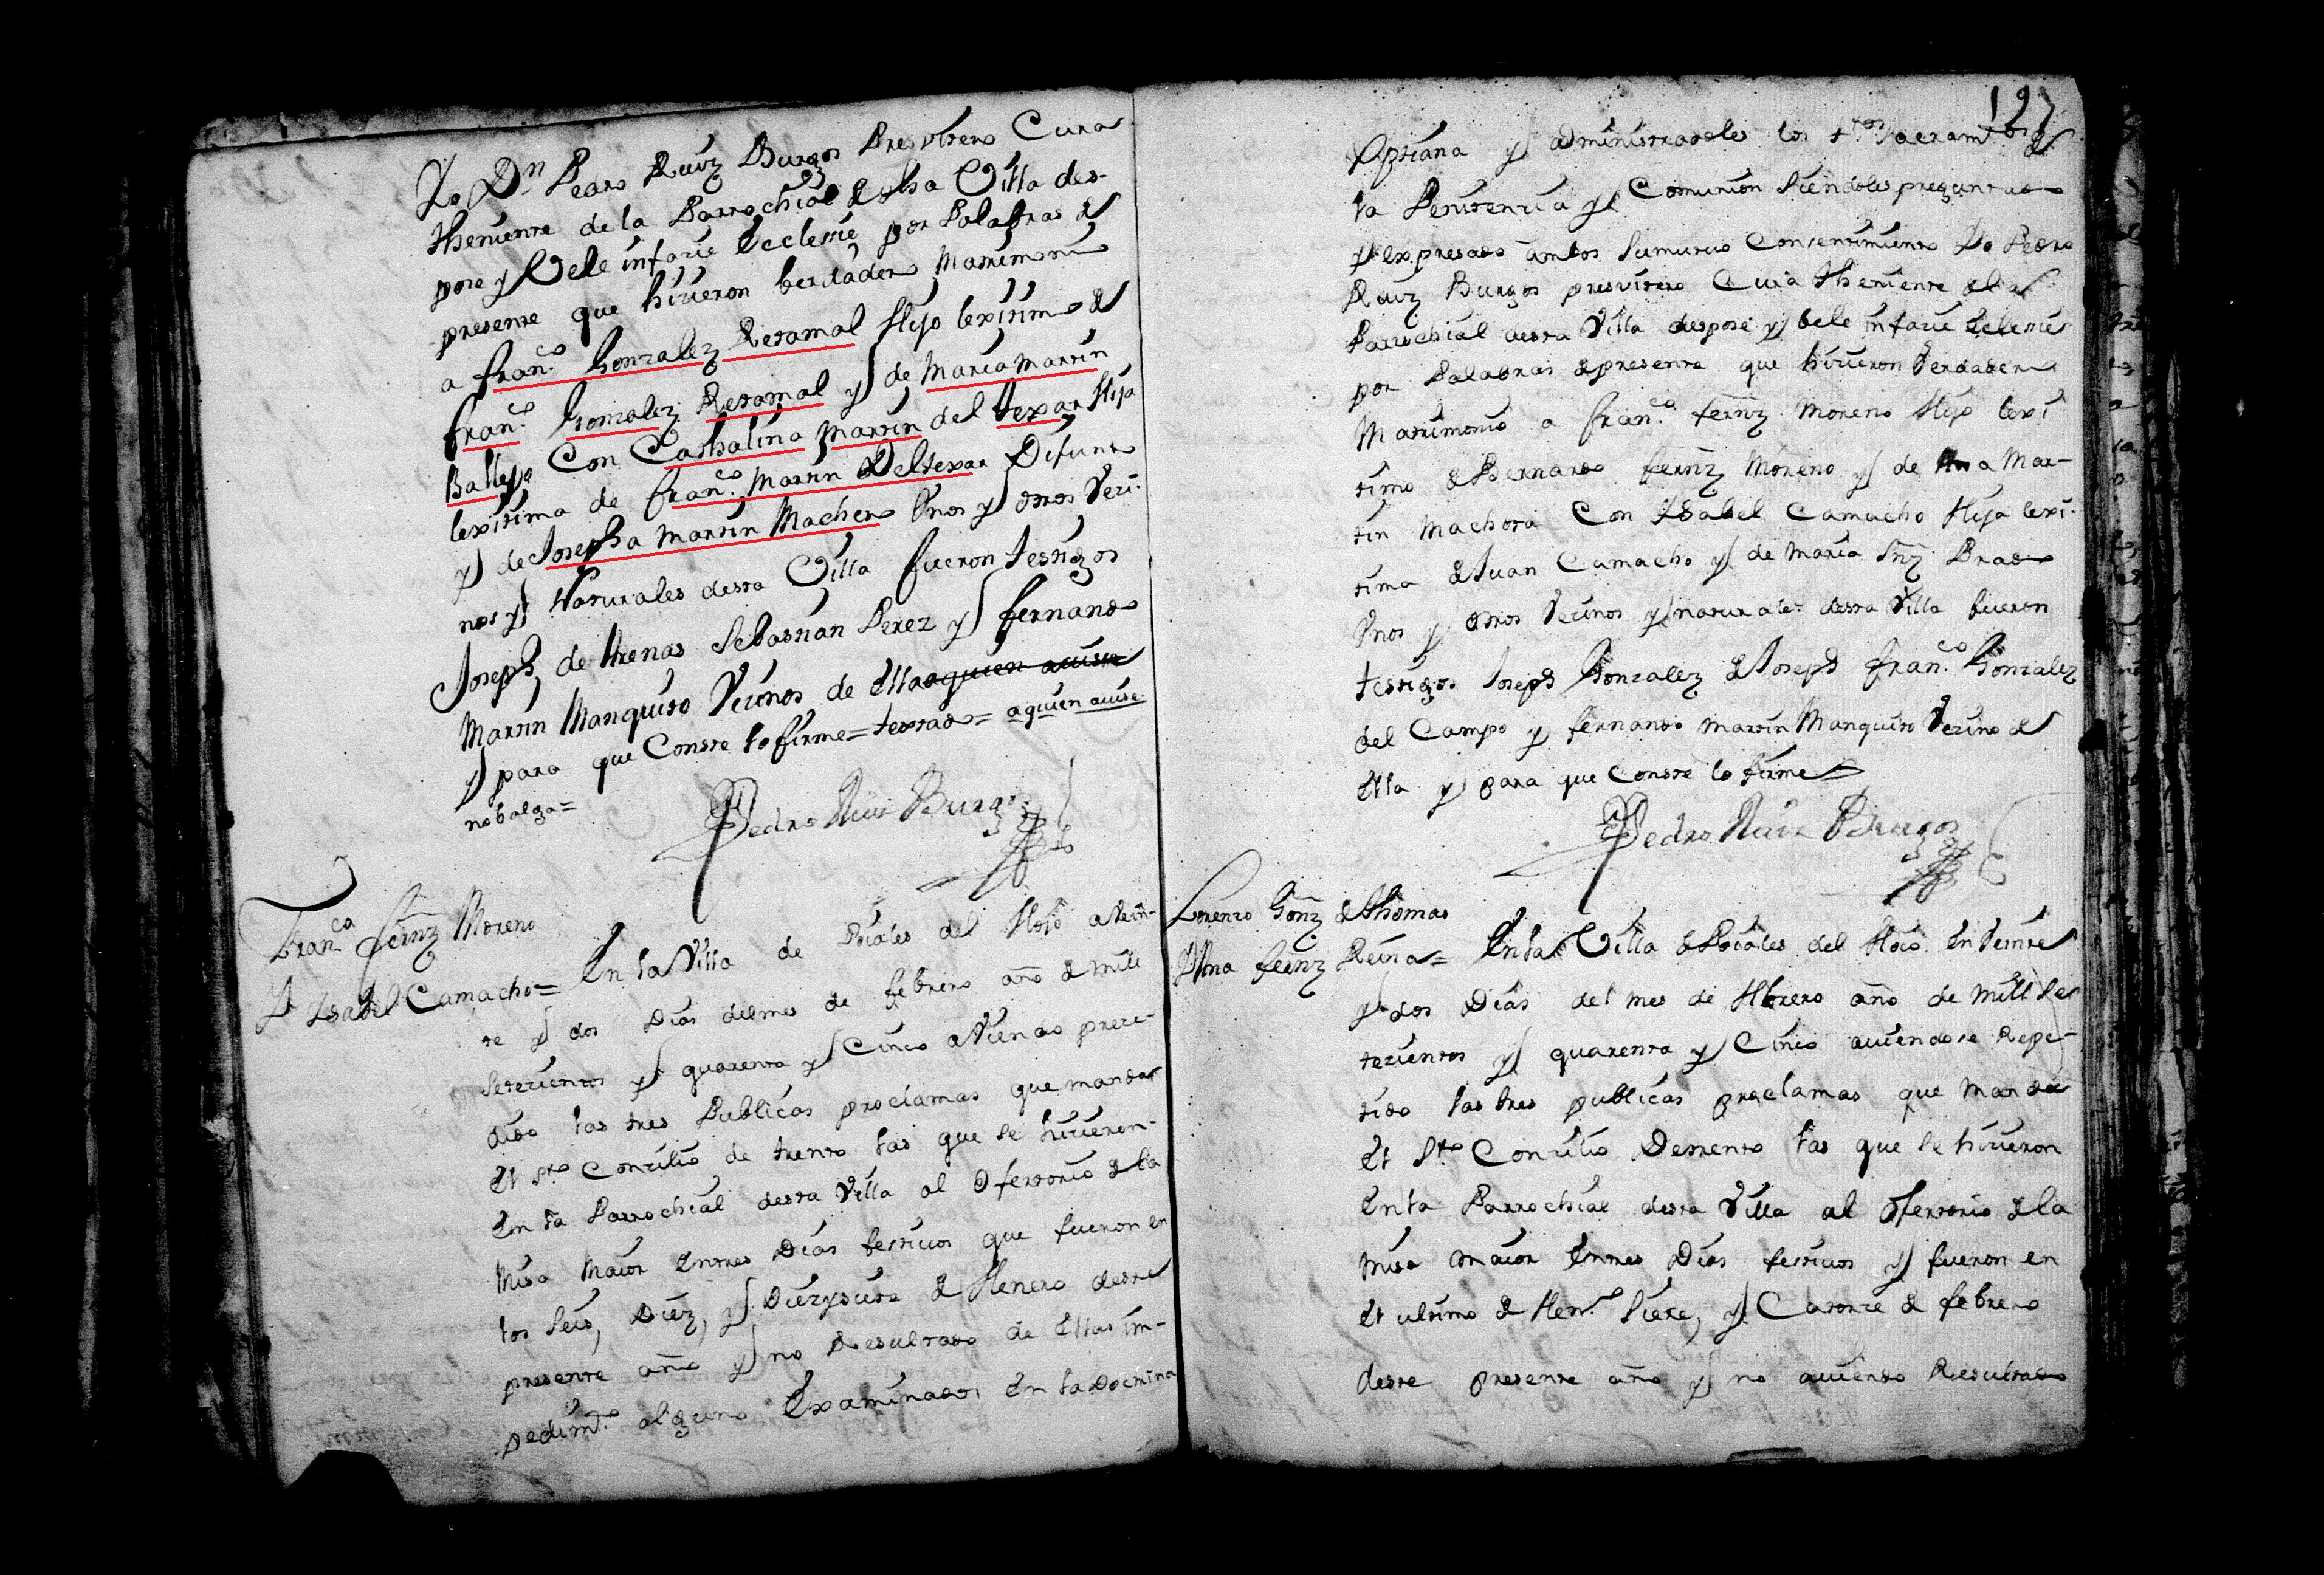 Yo Dn Pedro Ruiz Burgos Presvitero Cura
theniente de la Parrochial de dha Villa des-
pose y Vele infacie Eclesie por Palabras de
presente que hicieron berdadero Matrimonio
a Franco. Gonzalez Retamal Hijo lexitimo de
Franco. Gonzalez Retamal y de Maria Martin
Ballejo Con Cathalina Martin del texar Hija
lexitima de Franco. Martin Deltexar Difunto
y de Josepha Martin Machero Vnos y otros Veci-
nos y Naturales desta Villa fueron testigos
Joseph de thenas Sebastian Perez y fernando
Martin Manquito Vecinos de Ella aquien avise
y para que Conste lo firme = testado = aquien avise
nobalga =
Pedro Ruiz Burgos
Franco fernz Moreno
Y Ysabel Camacho = En la Villa de Pociales del Hoio a Vein-
te y dos Dias del mes de febrero año de mill
Setecientos y quarenta y Cinco aViendo prece-
dido las tres Publicas proclamas que manda
El sto Concilio de trento las que se hicieron
En la Parrochial desta Villa al Ofertorio de la
Misa Maior Entres Dias festivos que fueron en
los Seis, Diez, y Diezysiete de Henero deste
presente año y no Resultado de Ellas im-
pedimto alguno Examinados En la Doctrina
127
Xptiana y administradoles los stos Sacramtos de
la Penitencia y Comunion Siendoles preguntado
y expresado ambos Sumutuo Consentimiento Yo Pedro
Ruiz Burgos presvitero Cura theniente de la
Parrochial desta Villa despose y bele infacie Eclesie
por Palabras de presente que hicieron Verdadero
Matrimonio a franco. fernz Moreno Hijo lexi
timo de Bernardo fernz Moreno y de Ana Mar-
tin Machora Con Ysabel Camacho Hija lexi-
tima de Juan Camacho y de Maria Snz Brabo
Vnos y otros Vecinos y naturales desta Villa fueron
testigos Joseph Gonzalez de Joseph Franco. Gonzalez
del Campo y fernando Martin Manquito Vecino de
Ella y para que Conste lo firme
Pedro Ruiz Burgos
Lorenzo Gonz de thomas
Y Ana fernz Reina = En la Villa de Pociales del Hoio En Veinte
y dos Dias del mes de Hbrero año de Mill Se
tecientos y quarenta y Cinco aviendose Repe-
tido las tres publicas proclamas que Manda
El Sto Concilio Detrento las que se hicieron
En la Parrochial desta Villa al Ofertorio de la
misa maior Entres Dias festivos y fueron en
El ultimo de Heno Siete, y Catorce de febrero
deste presente año y no aviendo Resultado